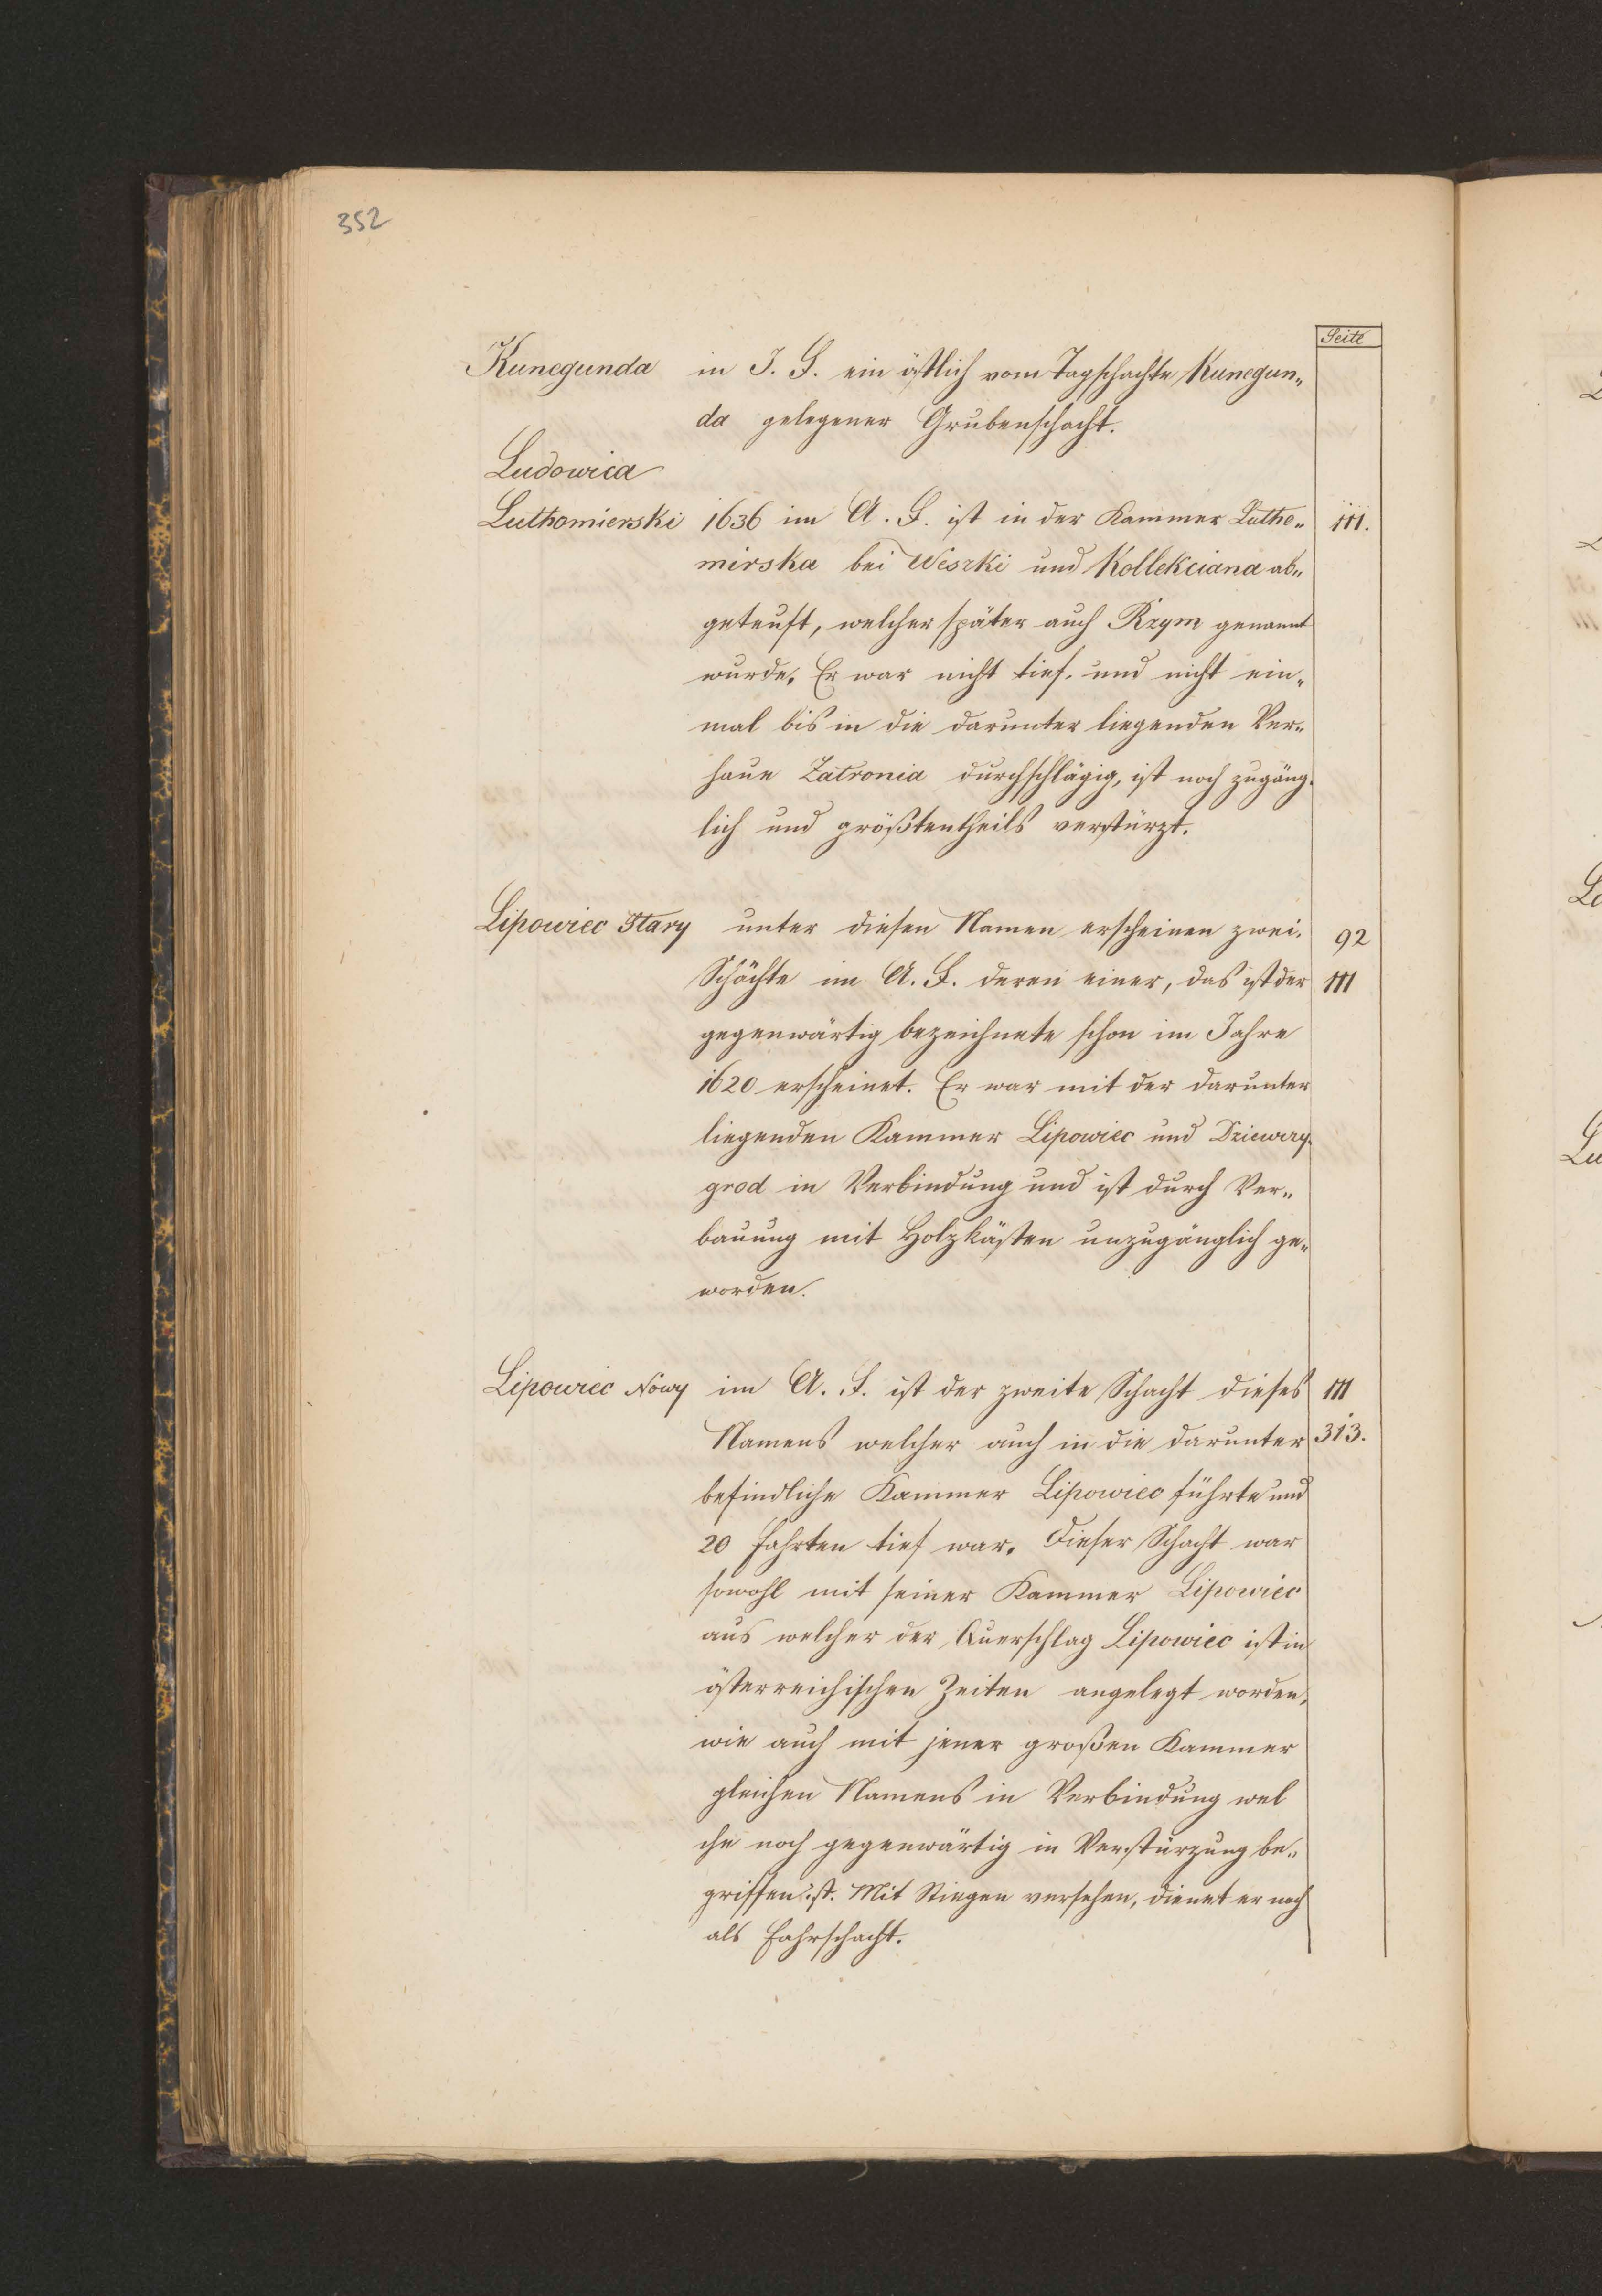 352
Seite
Kunegunda in J. F. ein östlich vom Tagschachte Kunegun„
da gelegener Grubenschacht.
Ludowica
Luthomierski 1636 im A. F. ist in der Kammer Lutho„ 111.
mirska bei Wiszki und Kollekciana ab„
geteuft, welcher später auch Rzym genannt
wurde. Er war nicht tief. und nicht ein„
mal bis in die darunter liegenden Ver„
haue Zatronia durchschlägig, ist noch zugäng„
lich und größtentheils verstürzt.
Lipowiec Stary unter diesen Namen erscheinen zwei. 92
Schächte im A. F. deren einer, das ist der 111
gegenwärtig bezeichnete schon im Jahre
1620 erscheinet. Er war mit der darunter
liegenden Kammer Lipowiec und
grod in Verbindung und ist durch Ver„
bauung mit Holzkästen unzugänglich ge„
worden.
Lipowiec Nowy im A. F. ist der zweite Schacht dieses 111
Namens welcher auch in die darunter 313.
befindliche Kammer Lipowiec führte und
20 Fahrten tief war. Dieser Schacht war
sowohl mit seiner Kammer Lipowiec
aus welcher der Querschlag Lipowiec ist in
österreichischen Zeiten angelegt worden,
wie auch mit jener großen Kammer
gleichen Namens in Verbindung wel
che noch gegenwärtig in Verstürzung be„
griffen ist. Mit Stiegen versehen, dienet er noch
als Fahrschacht.